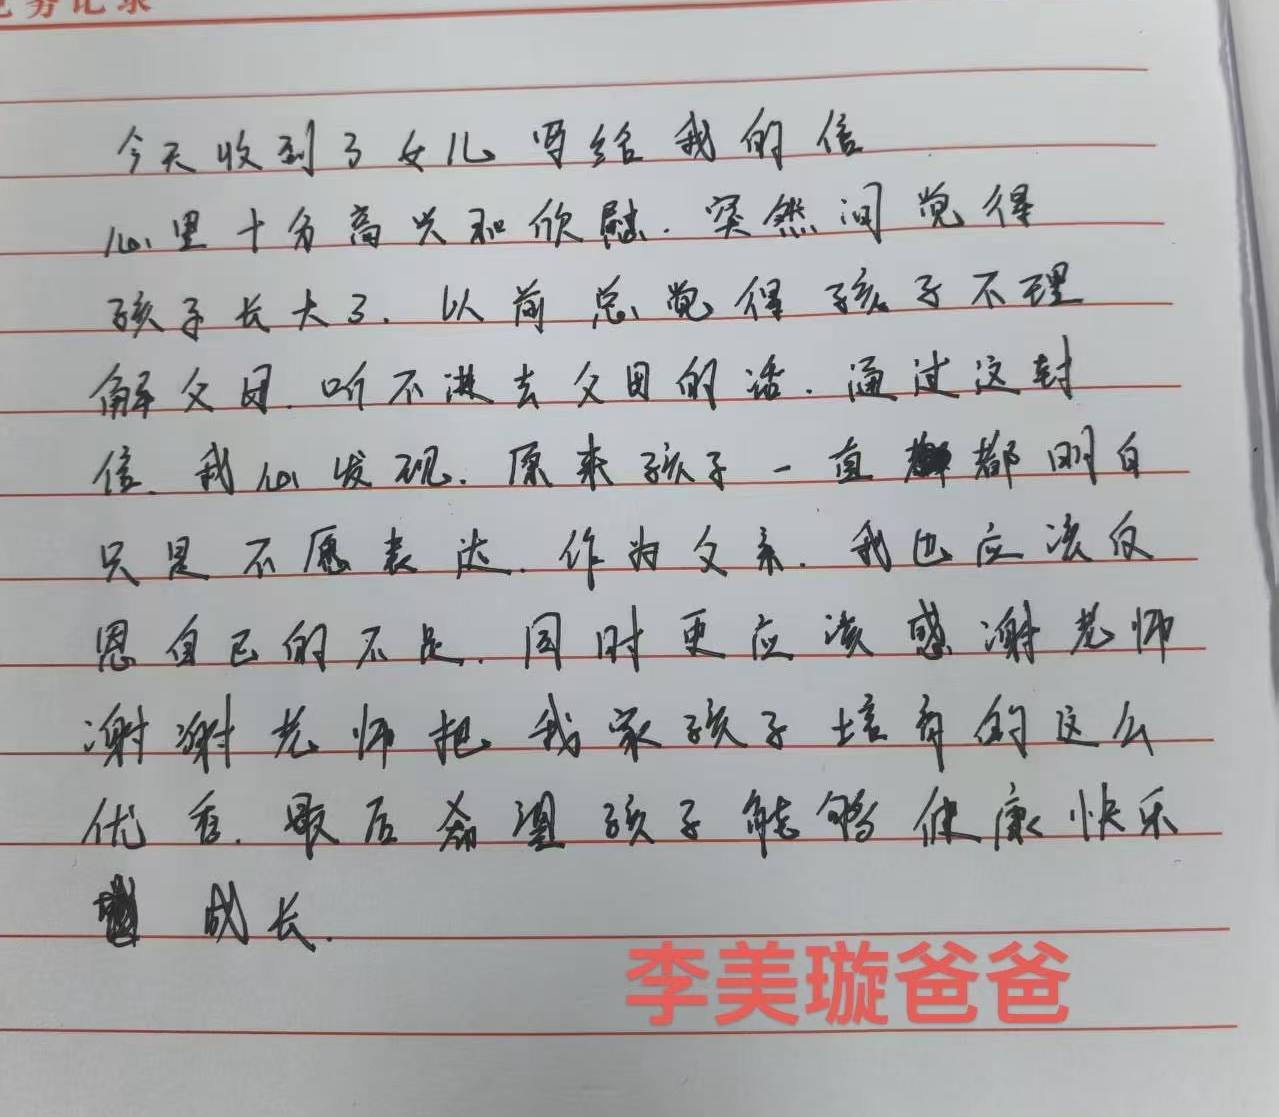 今天收到了女儿写给我的信
心里十分高兴和欣慰.突然间觉得
孩子长大了.以前总觉得孩子不理
解父母.听不进去父母的话.通过这封
信.我心发现.原来孩子一直都明白
只是不愿表达.作为父亲.我也应该反
思自己的不足.同时更应该感谢老师
谢谢老师把我家孩子培育的这么
优秀.最后希望孩子能够健康快乐
成长.
李美璇爸爸